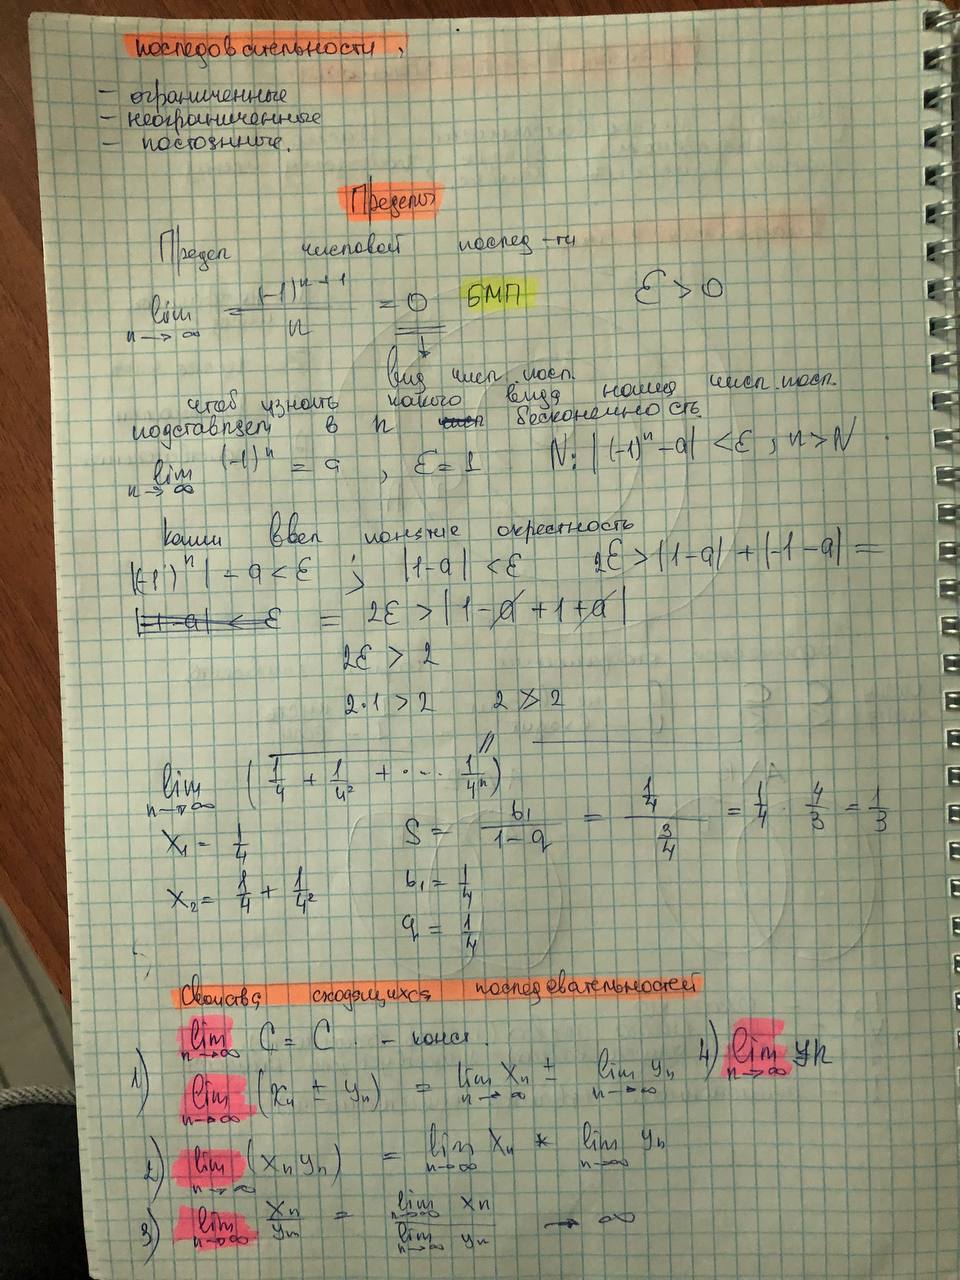 последовательности,
- ограниченные
- неограниченные
- постоянные.
Пределы
Предел числовой послед-ти
lim n→∞ = (-1)^(n+1) / n = 0 БМП ε > 0
↓
вид числ. посл.
чтоб узнать какого вида наша числ. посл.
подставляем в n бесконечность
lim n→∞ (-1)^n = a , ε = 1 N: |(-1)^n - a| < ε , n > N .
Коши ввел понятие окрестность
|(-1)^n| - a < ε ; |1-a| < ε 2ε > |1-a| + |-1-a| =
|-1-a| < ε = 2ε > |1-a+1+a|
2ε > 2
2·1 > 2 2 ≯ 2
//
lim n→∞ (1/4 + 1/4² + ···· 1/4ⁿ)
x₁ = 1/4 S = b₁/(1-q) = (1/4)/(3/4) = 1/4 · 4/3 = 1/3
x₂ = 1/4 + 1/4² b₁ = 1/4
q = 1/4
Свойства сходящихся последовательностей
lim n→∞ C = C. - конст.
1) lim n→∞ (xₙ ± yₙ) = lim n→∞ xₙ ± lim n→∞ yₙ 4) lim n→∞ yn
2) lim n→∞ (xₙ yₙ) = lim n→∞ xₙ * lim n→∞ yₙ
3) lim n→∞ xₙ/yₙ = lim n→∞ xₙ / lim n→∞ yₙ → ∞